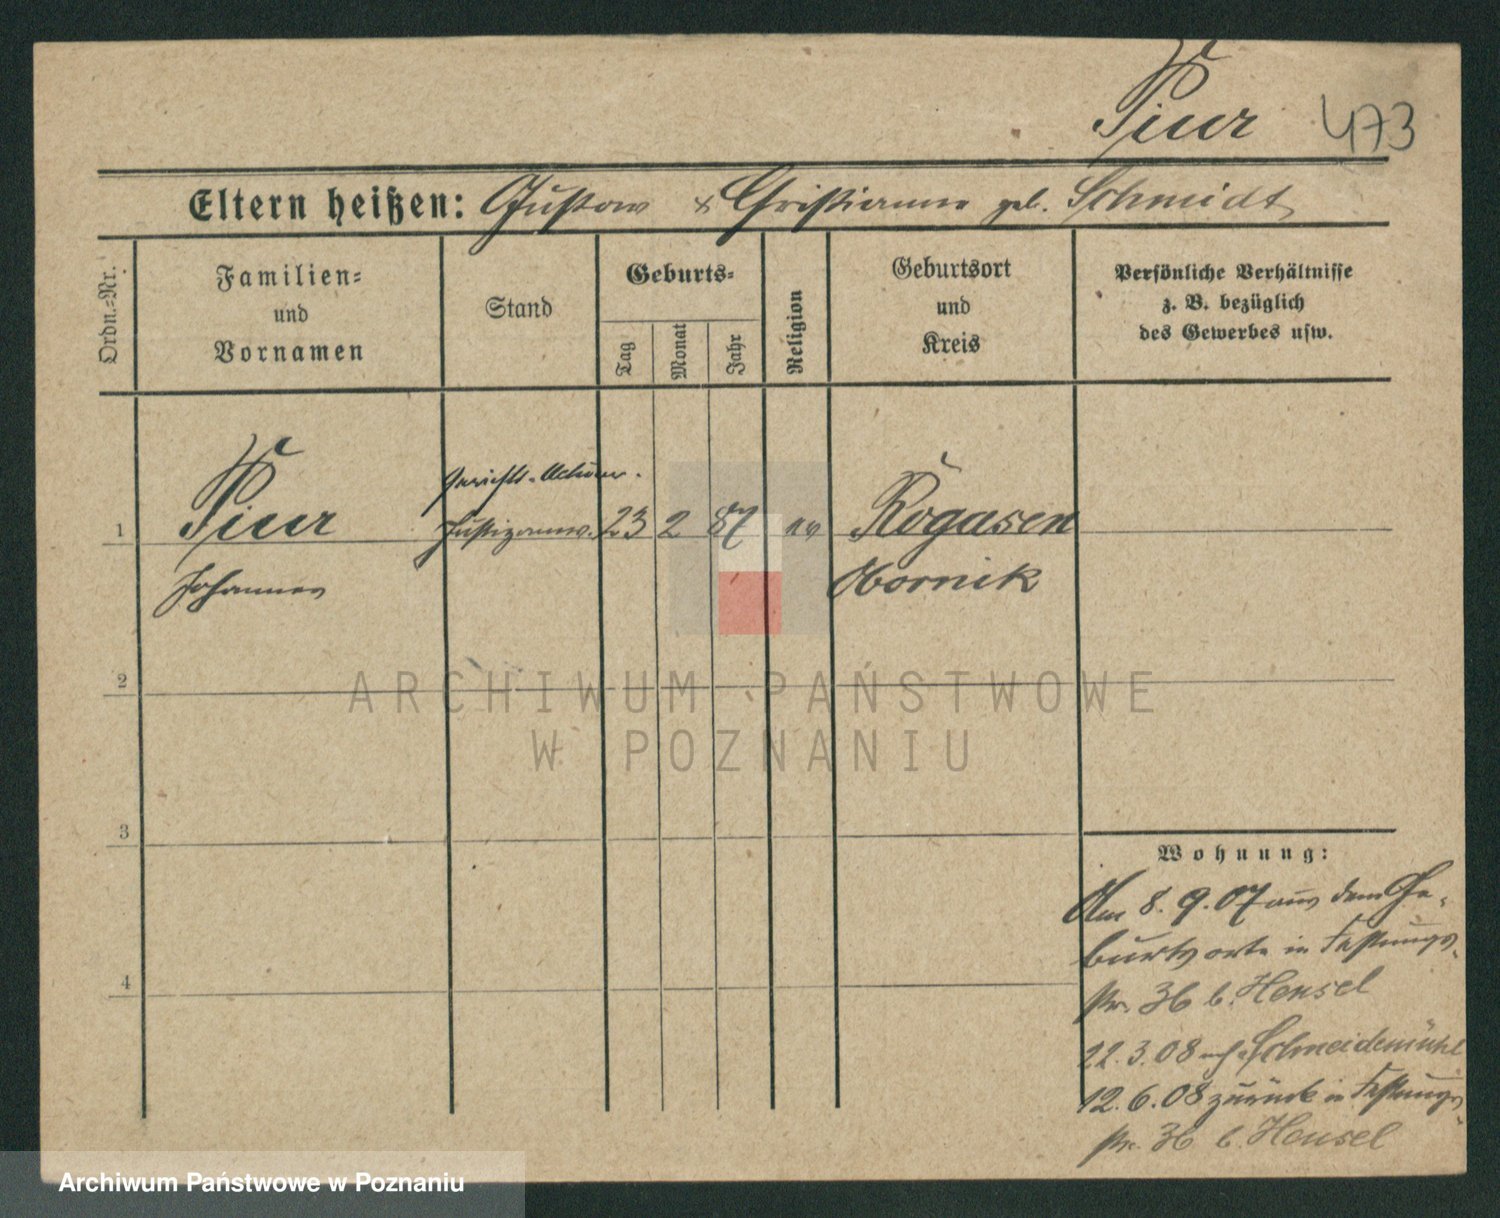 Pieur 473
Eltern heißen: Gustav & Christianne geb. Schmidt
Ordn.=Nr.
Familien=
und
Vornamen
Stand
Geburts=
Tag
Monat
Jahr
Religion
Geburtsort
und
Kreis
Persönliche Verhältnisse
z. B. bezüglich
des Gewerbes usw.
Gerichts-Actuar.
1 Pieur Justizanw. 23 2 87 ev Rogasen
Johannes Obornik
2
ARCHIWUM PAŃSTWOWE
W POZNANIU
3
Wohnung:
Am 8.9.07 aus dem Ge-
burtsorte in Festungs-
str. 36 b. Hensel
4
22.3.08 nach Schneidemühl
12.6.08 zurück in Festungs-
str. 36 b. Hensel
Archiwum Państwowe w Poznaniu